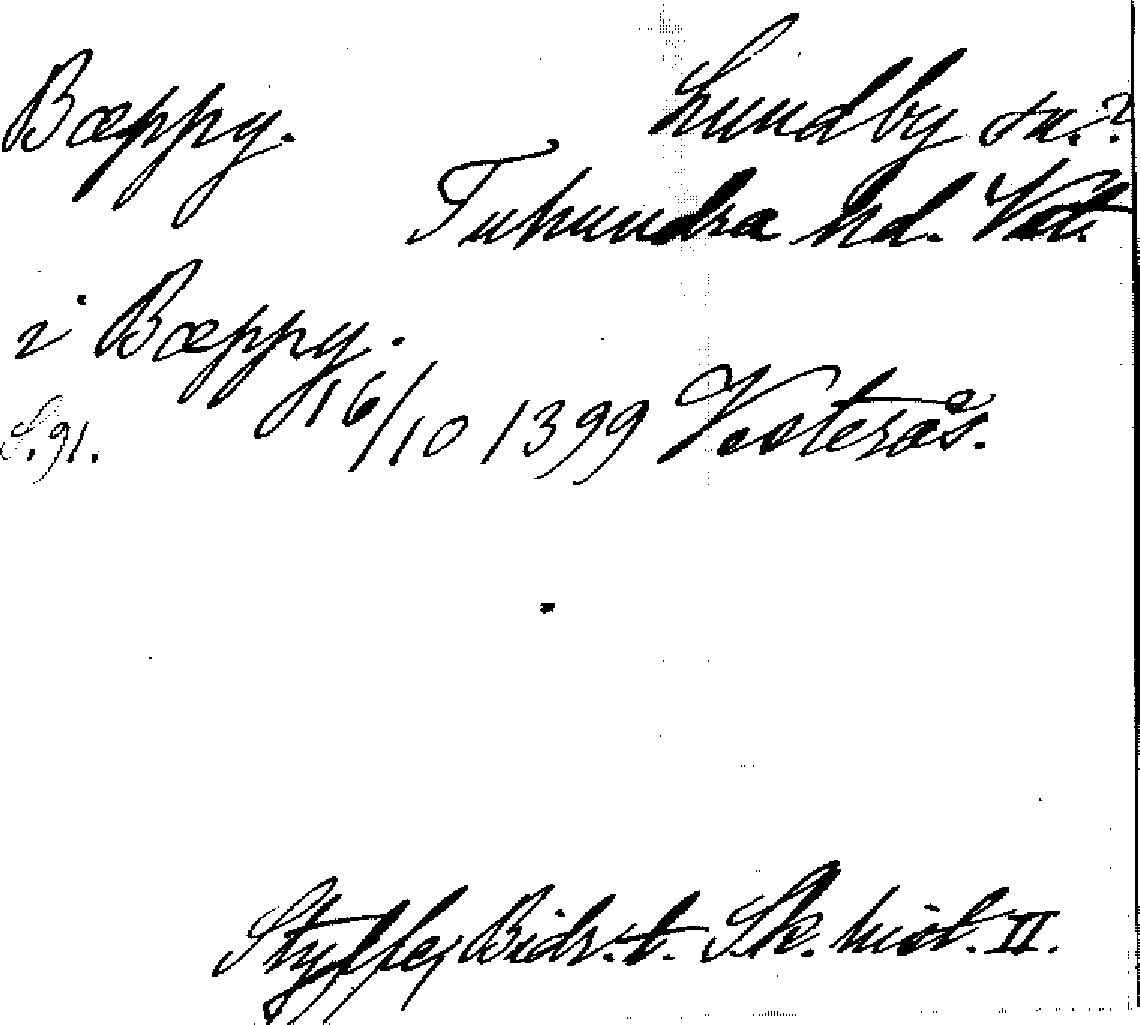 Bæppy. Lundby sn.?
Tuhundra hd. Vstm.
i Bæppy.
S. 91. 16/10 1399 Västerås.
Styffe, Bidr. t. Sk. hist. II.